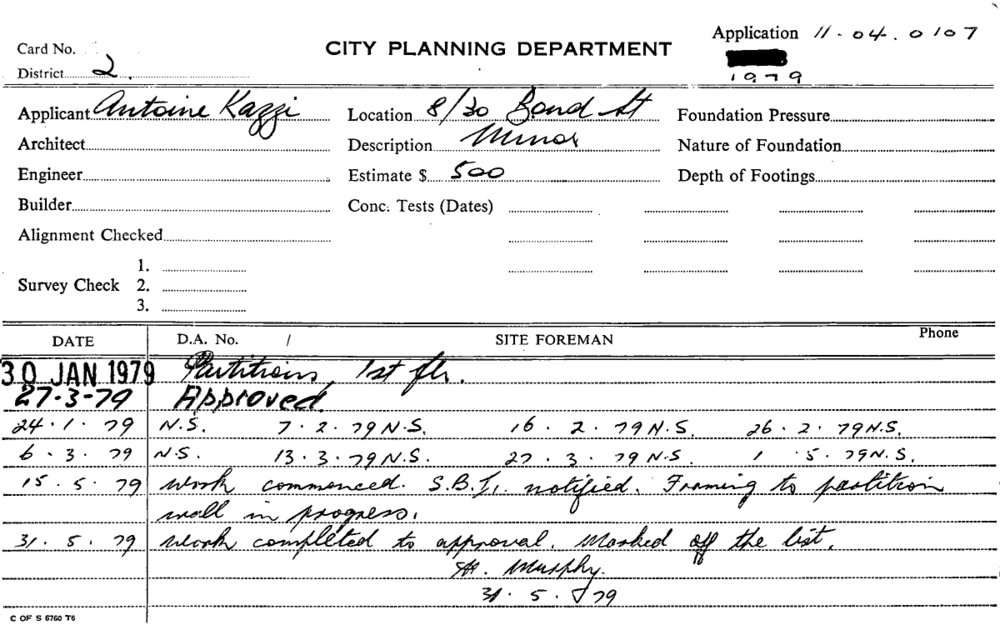 Application 11.04.0107
Card No.
CITY PLANNING DEPARTMENT
District 2.
1979
Applicant Antoine Kazzi
Location 8/30 Bond St
Foundation Pressure
Architect
Description Minor
Nature of Foundation
Engineer
Estimate $ 500
Depth of Footings
Builder
Conc. Tests (Dates)
Alignment Checked
1.
Survey Check 2.
3.
DATE D.A. No. / SITE FOREMAN Phone
30 JAN 1979 Partitions, 1st flr.
27-3-79 Approved.
24.1.79 N.S. 7.2.79 N.S. 16.2.79 N.S. 26.2.79 N.S.
6.3.79 N.S. 13.3.79 N.S. 27.3.79 N.S. 1.5.79 N.S.
15.5.79 Work commenced. S.B.I. notified. Framing to partition
wall in progress.
31.5.79 Work completed to approval. Marked off the list.
Murphy.
31.5.79
C OF S 6760 T6